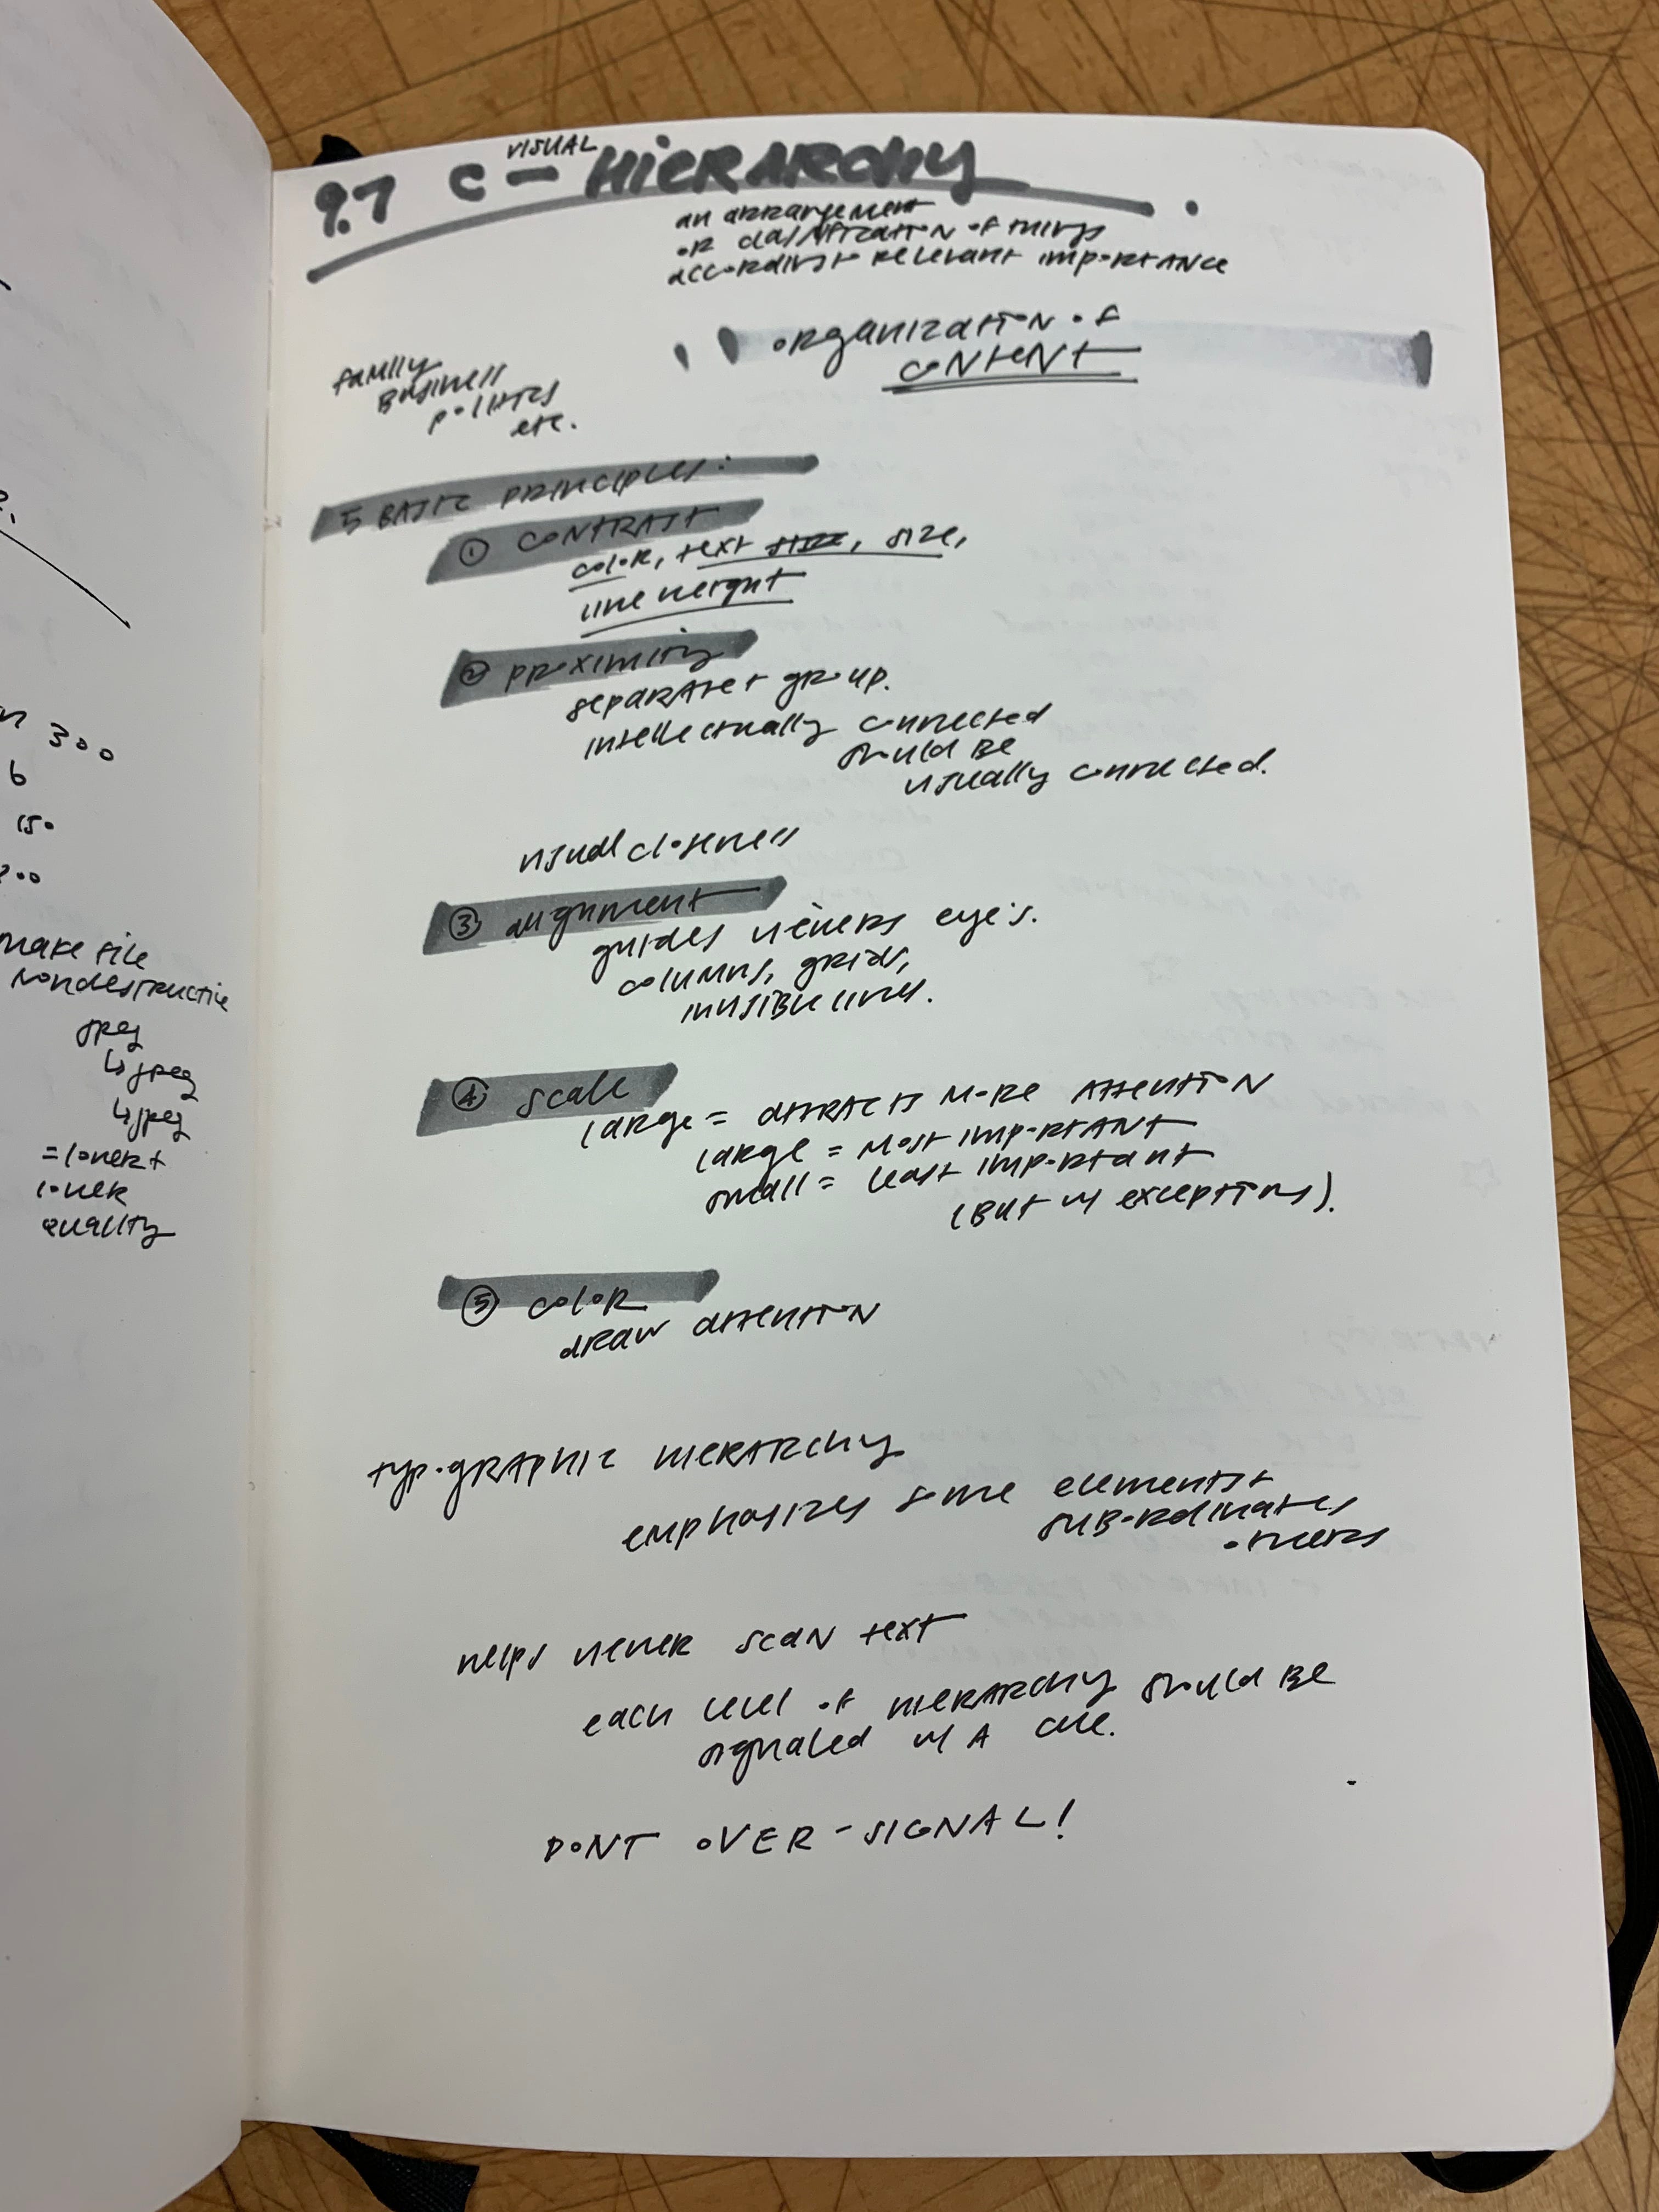 300
6
150
make file
nondestructive
jpeg
↳ jpeg
↳ jpeg
= lower +
lower
quality
VISUAL
9.7 C – HIERARCHY
an arrangement
or classification of things
according to relevant importance
organization of
content
family
business
politics
etc.
5 BASIC PRINCIPLES:
① CONTRAST
color, text size, size,
line weight
② proximity
separate + group.
intellectually connected
should be
visually connected.
visual closeness
③ alignment
guides viewers eye's.
columns, grids,
invisible lines.
④ scale
large = attracts more attention
large = most important
small = least important
(but w/ exceptions).
⑤ color
draw attention
typographic hierarchy
emphasizes some elements +
subordinates
others
helps viewer scan text
each level of hierarchy should be
signaled w/ a cue.
DONT OVER-SIGNAL!